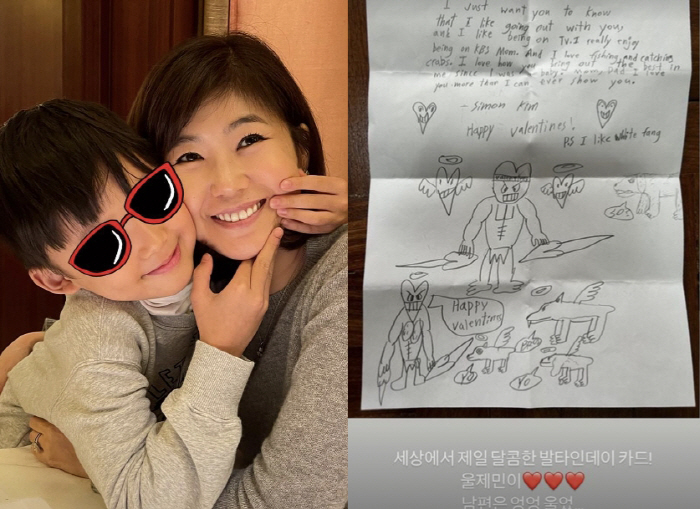 I Just want you to know
that I like going out with you,
and I like being on TV. I really enjoy
being on KBS Mom. And I love fishing and catching
crabs. I love how you bring out the best in
me since I was a baby. Mom, Dad I love
you more than I can ever show you.
- Simon Kim
Happy valentines!
PS I like white fang
Happy
valentines
세상에서 제일 달콤한 발타인데이 카드!
울제민이❤❤❤
남편은 엉엉 울었